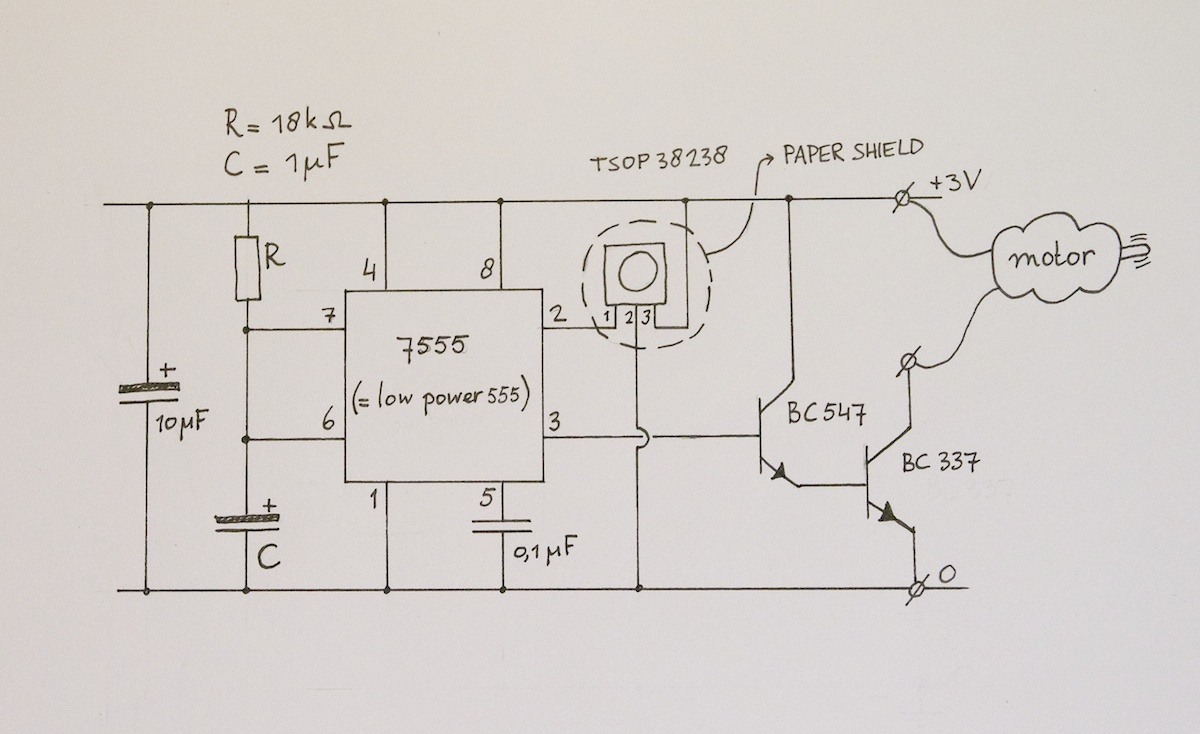 R = 18kΩ
C = 1µF
TSOP 38238
PAPER SHIELD
+3V
R
4
8
7
2
1 2 3
motor
7555
(= low power 555)
+
10µF
6
3
BC 547
BC 337
1
5
+
C
0,1µF
0